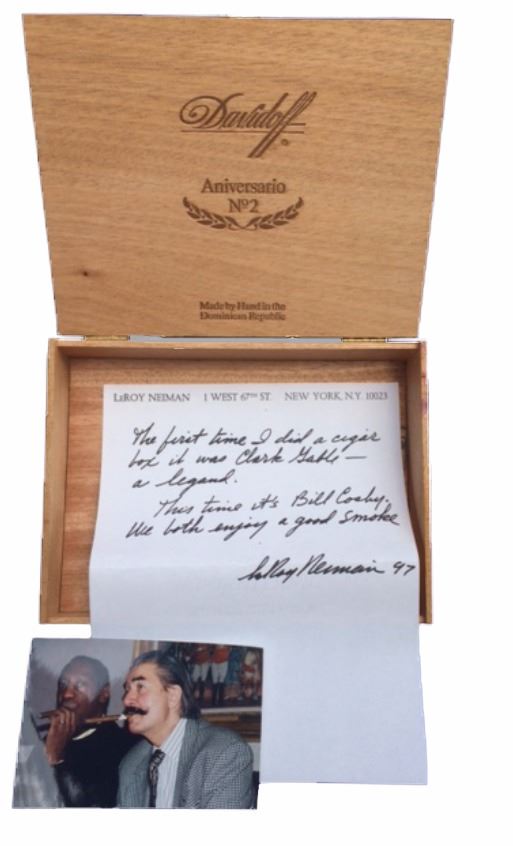 Davidoff
Aniversario
Nº2
Made by Hand in the
Dominican Republic
LEROY NEIMAN 1 WEST 67TH ST. NEW YORK, N.Y. 10023
The first time I did a cigar
box it was Clark Gable —
a legand.
This time it's Bill Cosby.
We both enjoy a good smoke
LeRoy Neiman 97